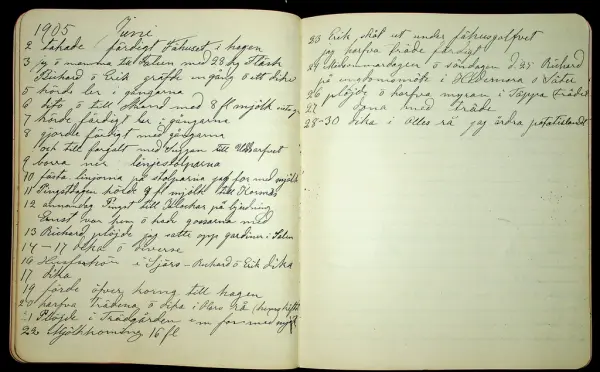 1905 Juni
2 takade färdigt Fähuset i hagen
3 jg ö mamma till Falun med 28 kg Fläsk
Richard ö Erik gräfde ingång ö ett dike
5 körde ler i gångarna
6 dito ö till Strand med 8 fl mjölk
7 körde färdigt ler i gångarna
8 gjorde färdigt med gångarna
och till forgalt med Suggan till
9 borra ner linjestolparna
10 fästa linjorna på stolparna jag for med mjölk
11 Pingstdagen körde 9 fl mjölk till Korsnäs
12 annandag Pingst till Klockar på bjudning
Ernst var hem ö hade gossarna med
13 Richard plöjde jag satte opp gardiner i Salen
14-17 dika ö diverse
16 i Sjörs - Richard ö Erik dika
17 dika
19 körde öfver korng till hagen
20 harfva Trädena ö dika i Olars rå
21 Plöjde i Trädgården em for med mjölk
22 Mjölkkorning 16 fl
23 Erik, sköl ut under fähusgolfvet
jag harfva träde färdigt
24 Midsommardagen ö söndagen d. 25 Richard
på ungdomsmöte i ö Säter
26 plöjde ö harfva myran i Täppa (träde)
27 dona med träde
28-30 dika i Olles rå jag ärdra potatislandet